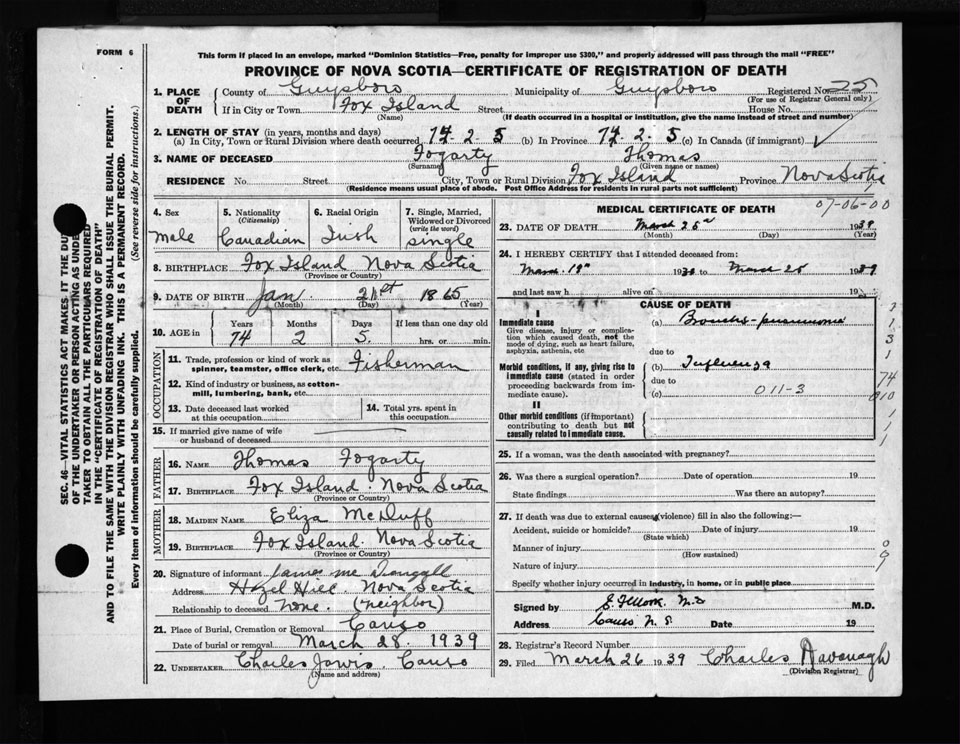 FORM 6
This form if placed in an envelope, marked "Dominion Statistics—Free, penalty for improper use $300," and properly addressed will pass through the mail "FREE"
PROVINCE OF NOVA SCOTIA—CERTIFICATE OF REGISTRATION OF DEATH
1. PLACE OF DEATH County of Guysboro Municipality of Guysboro Registered No. 25
(For use of Registrar General only)
If in City or Town Fox Island Street House No.
(Name) (If death occurred in a hospital or institution, give the name instead of street and number)
2. LENGTH OF STAY (in years, months and days)
(a) In City, Town or Rural Division where death occurred 74-2-5 (b) In Province 74-2-5 (c) In Canada (if immigrant)
3. NAME OF DECEASED Fogarty Thomas
(Surname) (Given name or names)
RESIDENCE No. Street City, Town or Rural Division Fox Island Province Nova Scotia
(Residence means usual place of abode. Post Office Address for residents in rural parts not sufficient)
07-06-00
4. Sex Male
5. Nationality (Citizenship) Canadian
6. Racial Origin Irish
7. Single, Married, Widowed or Divorced (write the word) single
8. BIRTHPLACE Fox Island Nova Scotia
(Province or Country)
9. DATE OF BIRTH Jan. 21st 1865
(Month) (Day) (Year)
10. AGE in Years Months Days If less than one day old
74 2 5. hrs. or min.
OCCUPATION
11. Trade, profession or kind of work as spinner, teamster, office clerk, etc. Fisherman
12. Kind of industry or business, as cotton-mill, lumbering, bank, etc.
13. Date deceased last worked at this occupation
14. Total yrs. spent in this occupation
15. If married give name of wife or husband of deceased
FATHER
16. NAME Thomas Fogarty
17. BIRTHPLACE Fox Island. Nova Scotia
(Province or Country)
MOTHER
18. MAIDEN NAME Eliza McDuff
19. BIRTHPLACE Fox Island. Nova Scotia
(Province or Country)
20. Signature of informant James
Address Hazel Hill. Nova Scotia
Relationship to deceased None. (neighbor)
21. Place of Burial, Cremation or Removal Canso
Date of burial or removal March 28. 1939
22. UNDERTAKER Charles Jarvis. Canso
(Name and address)
MEDICAL CERTIFICATE OF DEATH
23. DATE OF DEATH March 25 1939
(Month) (Day) (Year)
24. I HEREBY CERTIFY that I attended deceased from:
March 19 to March 25 1939
and last saw h alive on 19
CAUSE OF DEATH
I
Immediate cause
Give disease, injury or complication which caused death, not the mode of dying, such as heart failure, asphyxia, asthenia, etc
(a) Broncho-pneumonia
due to
Morbid conditions, if any, giving rise to immediate cause (stated in order proceeding backwards from immediate cause).
(b) Influenza
due to
(c) 011-3
II
Other morbid conditions (if important) contributing to death but not causally related to immediate cause.
25. If a woman, was the death associated with pregnancy?
26. Was there a surgical operation? Date of operation 19
State findings Was there an autopsy?
27. If death was due to external causes (violence) fill in also the following:—
Accident, suicide or homicide? Date of injury 19
(State which)
Manner of injury
(How sustained)
Nature of injury
Specify whether injury occurred in industry, in home, or in public place
Signed by M.D.
Address Canso N.S. Date 19
28. Registrar's Record Number
29. Filed March 26 1939 Charles Kavanagh
(Division Registrar)
SEC. 46—VITAL STATISTICS ACT MAKES IT THE DUTY
OF THE UNDERTAKER OR PERSON ACTING AS UNDERTAKER
TO OBTAIN ALL THE PARTICULARS REQUIRED
IN THE "CERTIFICATE OF REGISTRATION OF DEATH"
AND TO FILE THE SAME WITH THE DIVISION REGISTRAR WHO SHALL ISSUE THE BURIAL PERMIT.
WRITE PLAINLY WITH UNFADING INK. THIS IS A PERMANENT RECORD.
Every item of information should be carefully supplied. (See reverse side for instructions.)